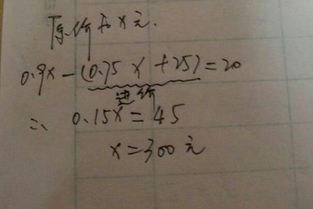 原价为x元.
0.9x-(0.75x+25)=20
进价
∴ 0.15x=45
x=300元